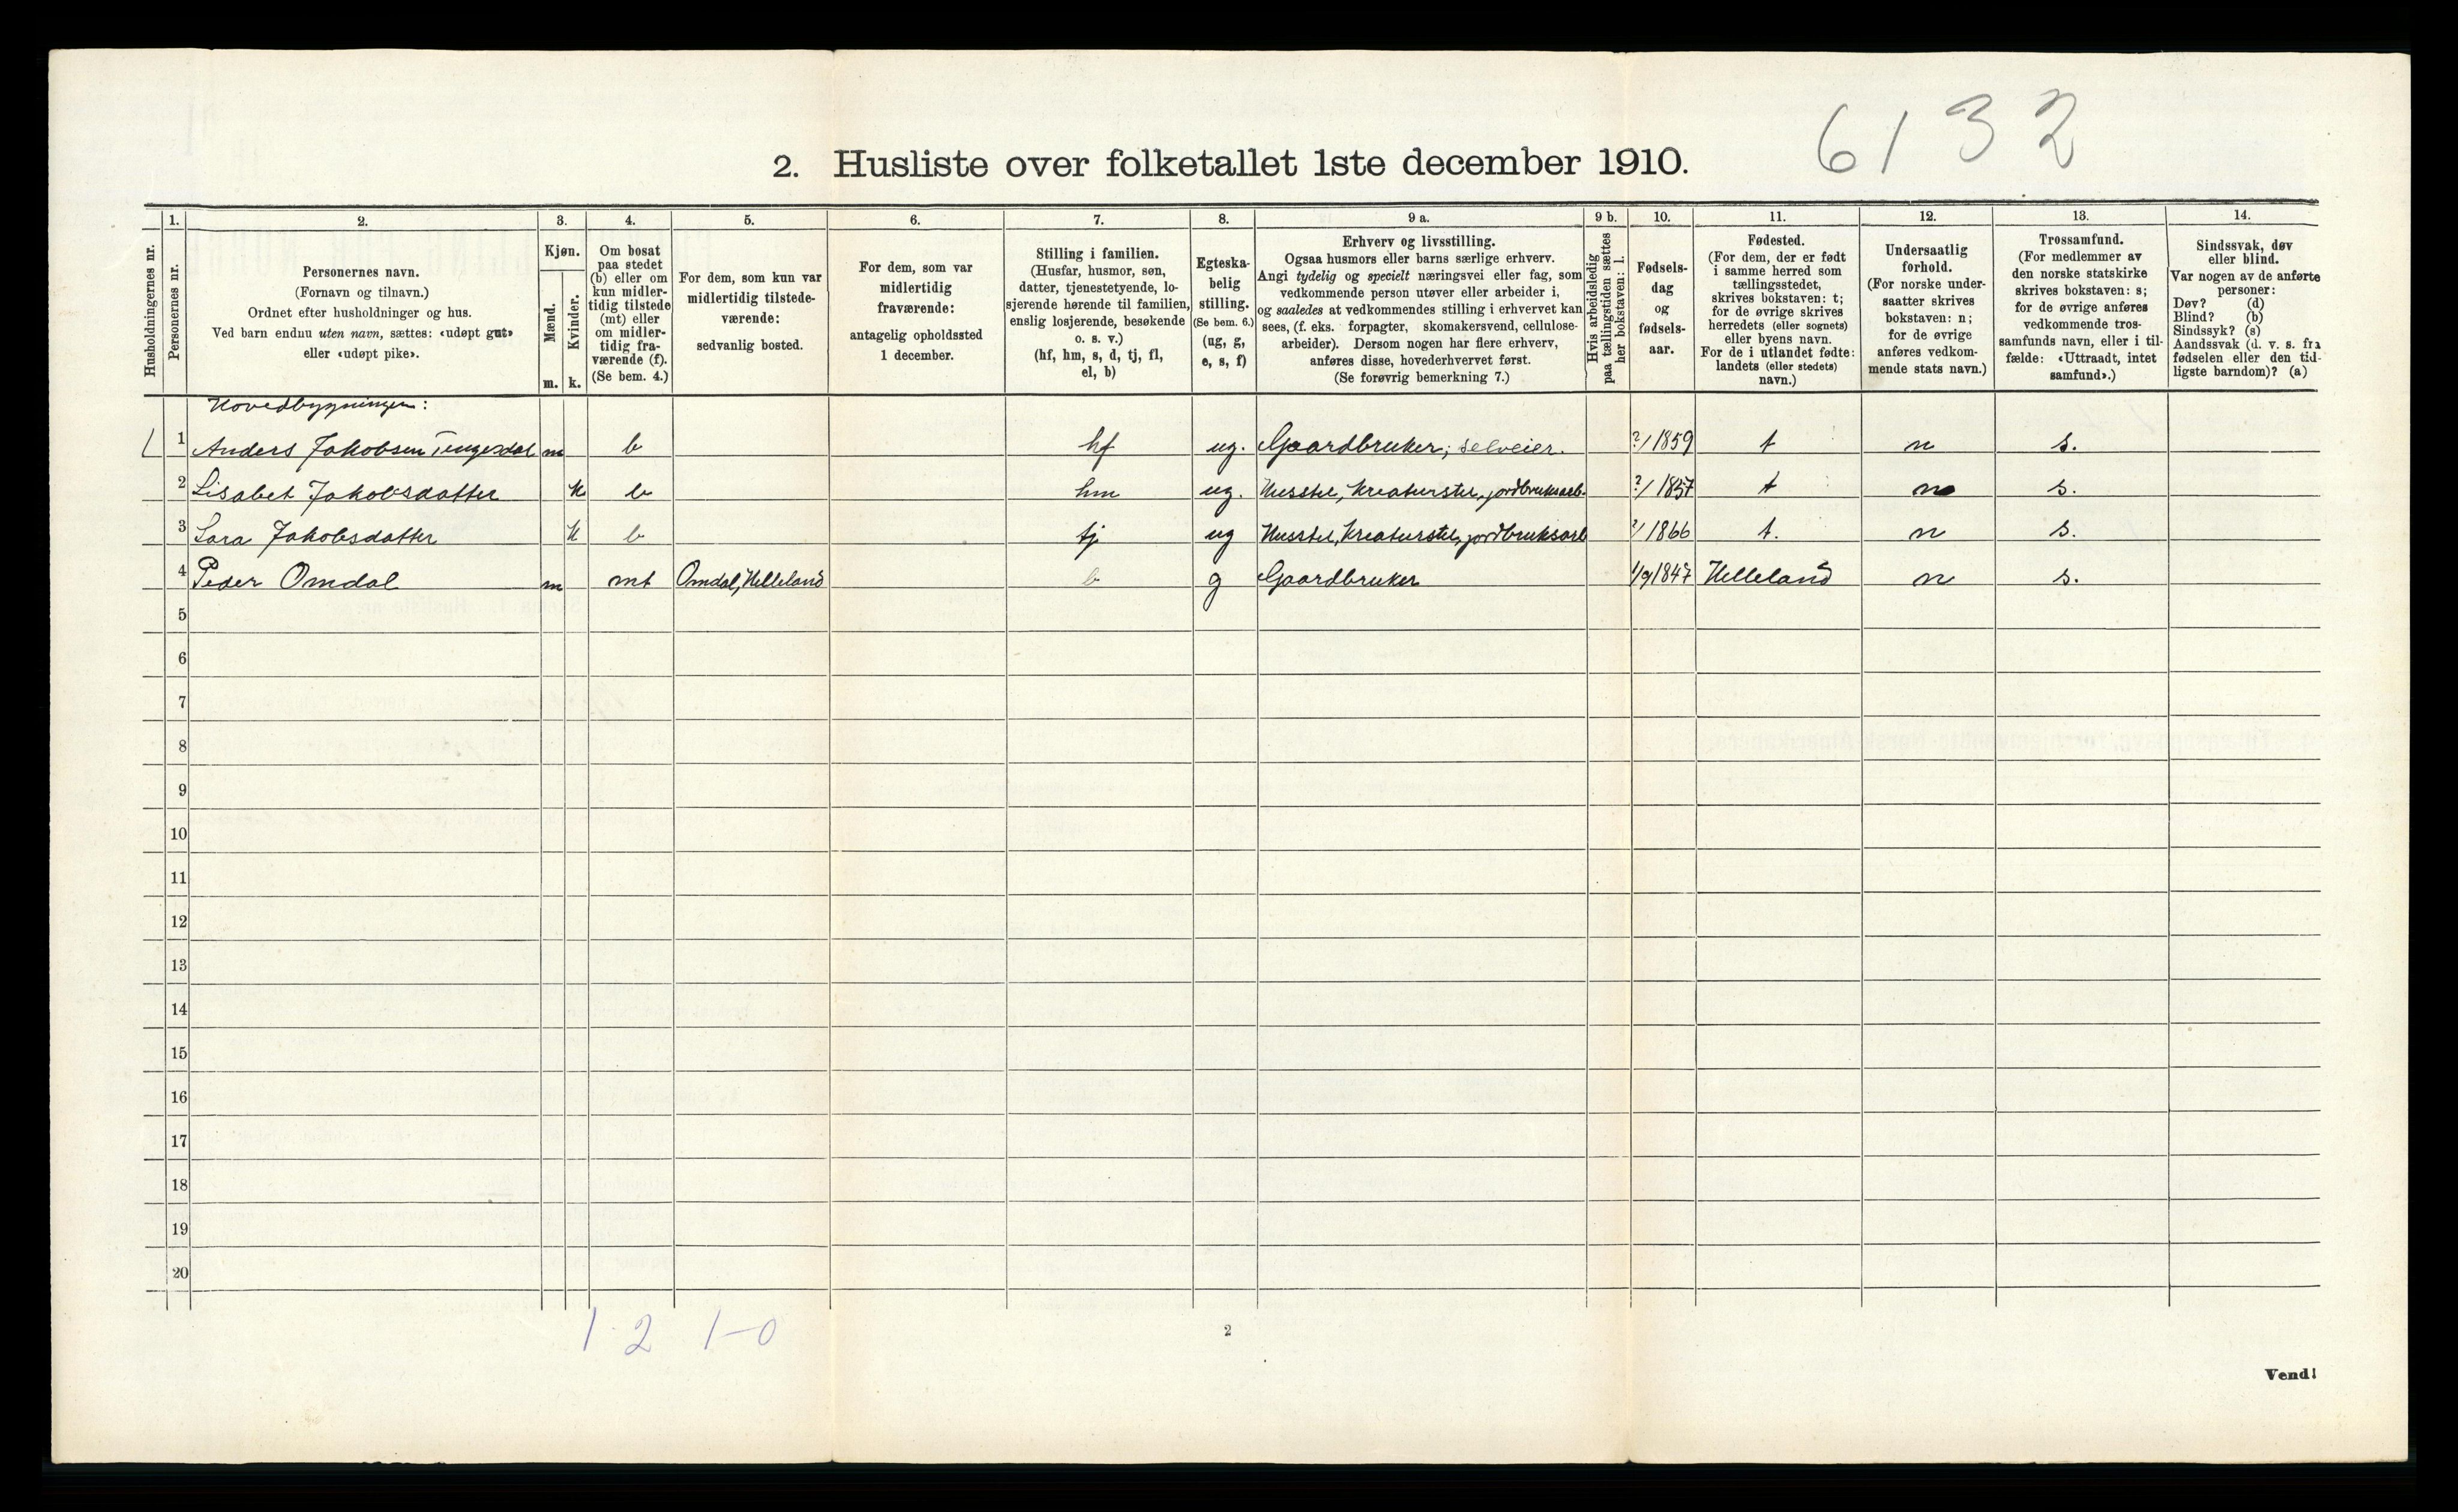 6132
2. Husliste over folketallet 1ste december 1910.
1. 2. 3. 4. 5. 6. 7. 8. 9 a. 9 b. 10. 11. 12. 13. 14.
Husholdningernes nr.
Personernes nr.
Personernes navn.
(Fornavn og tilnavn.)
Ordnet efter husholdninger og hus.
Ved barn endnu uten navn, sættes: «udøpt gut»
eller «udøpt pike».
Kjøn.
Mænd.
Kvinder.
m. k.
Om bosat
paa stedet
(b) eller om
kun midler-
tidig tilstede
(mt) eller
om midler-
tidig fra-
værende (f).
(Se bem. 4.)
For dem, som kun var
midlertidig tilstede-
værende:
sedvanlig bosted.
For dem, som var
midlertidig
fraværende:
antagelig opholdssted
1 december.
Stilling i familien.
(Husfar, husmor, søn,
datter, tjenestetyende, lo-
sjerende hørende til familien,
enslig losjerende, besøkende
o. s. v.)
(hf, hm, s, d, tj, fl,
el, b)
Egteska-
belig
stilling.
(Se bem. 6.)
(ug, g,
e, s, f)
Erhverv og livsstilling.
Ogsaa husmors eller barns særlige erhverv.
Angi tydelig og specielt næringsvei eller fag, som
vedkommende person utøver eller arbeider i,
og saaledes at vedkommendes stilling i erhvervet kan
sees, (f. eks. forpagter, skomakersvend, cellulose-
arbeider). Dersom nogen har flere erhverv,
anføres disse, hovederhvervet først.
(Se forøvrig bemerkning 7.)
Hvis arbeidsledig
paa tællingstiden sættes
her bokstaven: l.
Fødsels-
dag
og
fødsels-
aar.
Fødested.
(For dem, der er født
i samme herred som
tællingsstedet,
skrives bokstaven: t;
for de øvrige skrives
herredets (eller sognets)
eller byens navn.
For de i utlandet fødte:
landets (eller stedets)
navn.)
Undersaatlig
forhold.
(For norske under-
saatter skrives
bokstaven: n;
for de øvrige
anføres vedkom-
mende stats navn.)
Trossamfund.
(For medlemmer av
den norske statskirke
skrives bokstaven: s;
for de øvrige anføres
vedkommende tros-
samfunds navn, eller i til-
fælde: «Uttraadt, intet
samfund».)
Sindssvak, døv
eller blind.
Var nogen av de anførte
personer:
Døv? (d)
Blind? (b)
Sindssyk? (s)
Aandssvak (d. v. s. fra
fødselen eller den tid-
ligste barndom)? (a)
Hovedbygningen:
1 Anders Jakobsen Tengesdal m b hf ug. Gaardbruker; selveier. ?/1859 t n s.
2 Lisabet Jakobsdatter k b hm ug. Husstel, kreaturstel, jordbruksarb. ?/1857 t n s.
3 Sara Jakobsdatter k b tj ug Husstel, kreaturstel, jordbruksarb ?/1866 t. n s.
4 Peder Omdal m mt Omdal, Helleland b g Gaardbruker 1/9 1847 Helleland n s.
5
6
7
8
9
10
11
12
13
14
15
16
17
18
19
20
1 2 1-0
2
Vend!